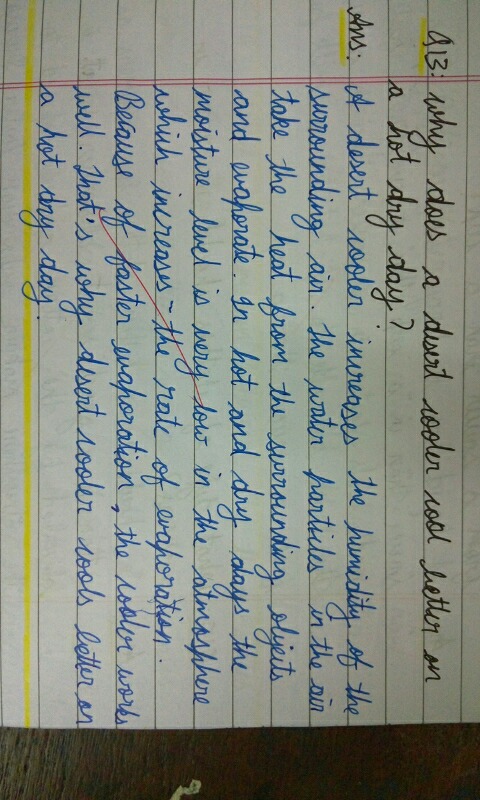 Q13: Why does a desert cooler cool better on
a hot dry day?
Ans: A desert cooler increases the humidity of the
surrounding air. The water particles in the air
take the heat from the surrounding objects
and evaporate. In hot and dry days the
moisture level is very low in the atmosphere
which increases the rate of evaporation.
Because of faster evaporation, the cooler works
well. That's why desert cooler cools better on
a hot dry day.